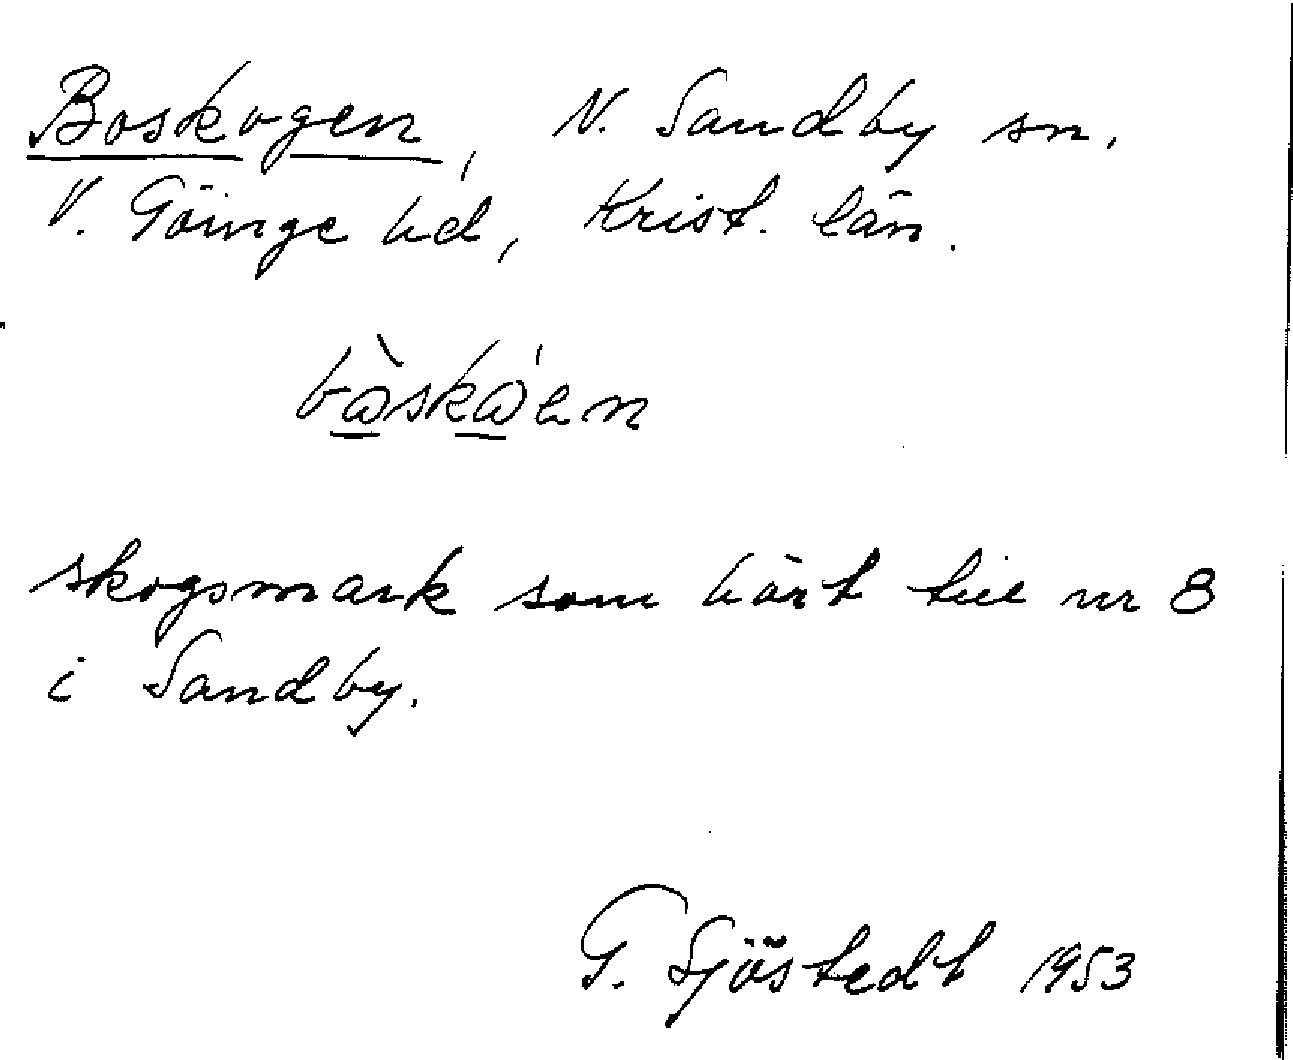 Boskogen, N. Sandby sn.
V. Göinge hd, Krist. län.
skogsmark som hört till nr 8
i Sandby.
G. Sjöstedt 1953